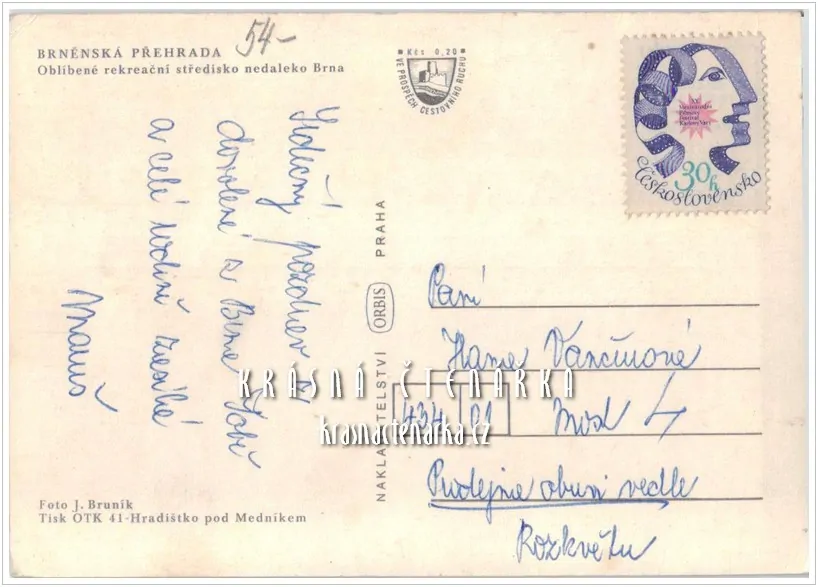 BRNĚNSKÁ PŘEHRADA
Oblíbené rekreační středisko nedaleko Brna
54-
Kčs 0,20
VE PROSPĚCH CESTOVNÍHO RUCHU
30h
Československo
Srdečný pozdrav z
dovolené z Brna Tobě
a celé rodině zasílá
NAKLADATELSTVÍ ORBIS PRAHA
Paní
Hana Vančurová
434 01
Most 4
Prodejna obuvi vedle
Rozkvětu
KRÁSNÁ ČTENÁRKA
krasnactenarka.cz
Foto J. Bruník
Tisk OTK 41-Hradištko pod Medníkem